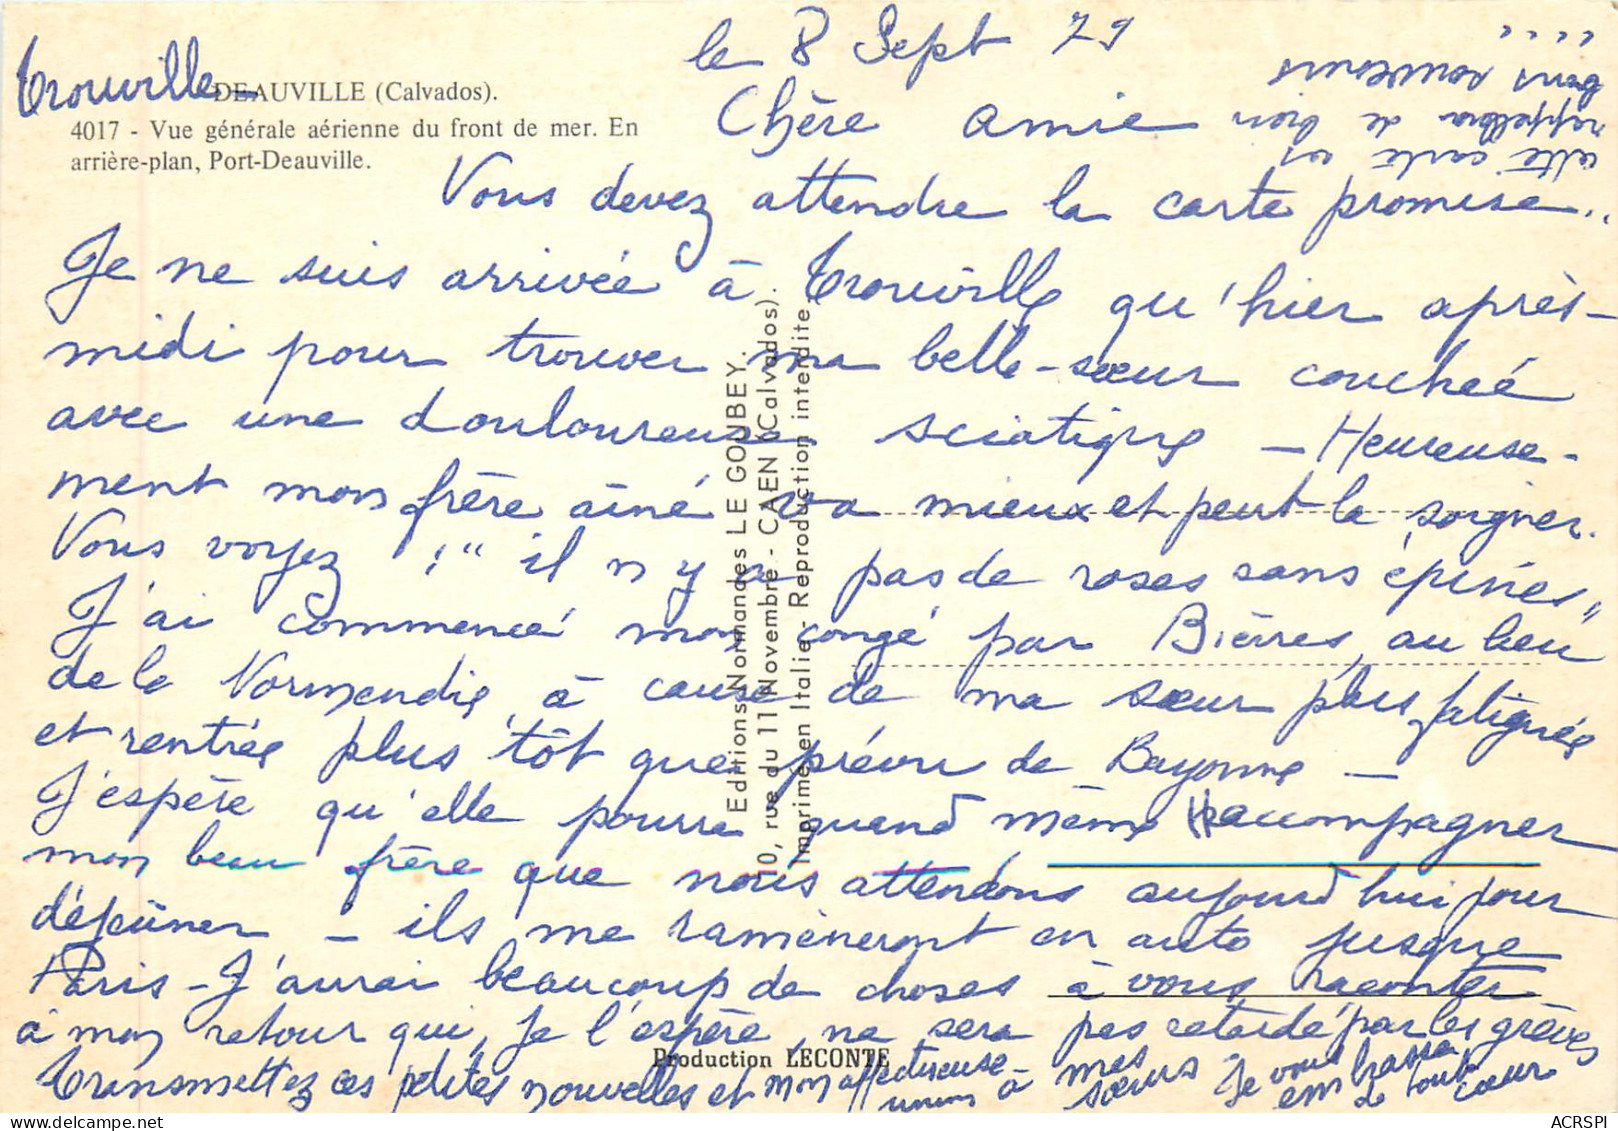 le 8 Sept 79
Trouville - DEAUVILLE (Calvados).
4017 - Vue générale aérienne du front de mer. En
arrière-plan, Port-Deauville.
Chère amie
Vous devez attendre la carte promise..
Je ne suis arrivée à Trouville qu'hier après-
midi pour trouver ma belle-sœur couchée
avec une douloureuse sciatique - Heureuse-
ment mon frère aîné va mieux et peut la soigner.
Vous voyez : "il n'y a pas de roses sans épines"
J'ai commencé mon congé par Bièvres, au lieu
de la Normandie, à cause de ma sœur plus fatiguée
et rentrée plus tôt que prévu de Bayonne -
J'espère qu'elle pourra quand même accompagner
mon beau frère que nous attendons aujourd'hui pour
déjeûner - ils me ramèneront en auto jusque
Paris - J'aurai beaucoup de choses à vous raconter
à mon retour qui, je l'espère, ne sera pas retardé par les grèves
Transmettez ces petites nouvelles et mon affectueuse
union à mes sœurs Je vous embrasse de tout cœur
cette carte vs
rappellera de bien
bons souvenirs
....
Editions Normandes LE GOUBEY.
10, rue du 11 Novembre - CAEN (Calvados).
Imprimé en Italie - Reproduction interdite.
Production LECONTE
ACRSPI